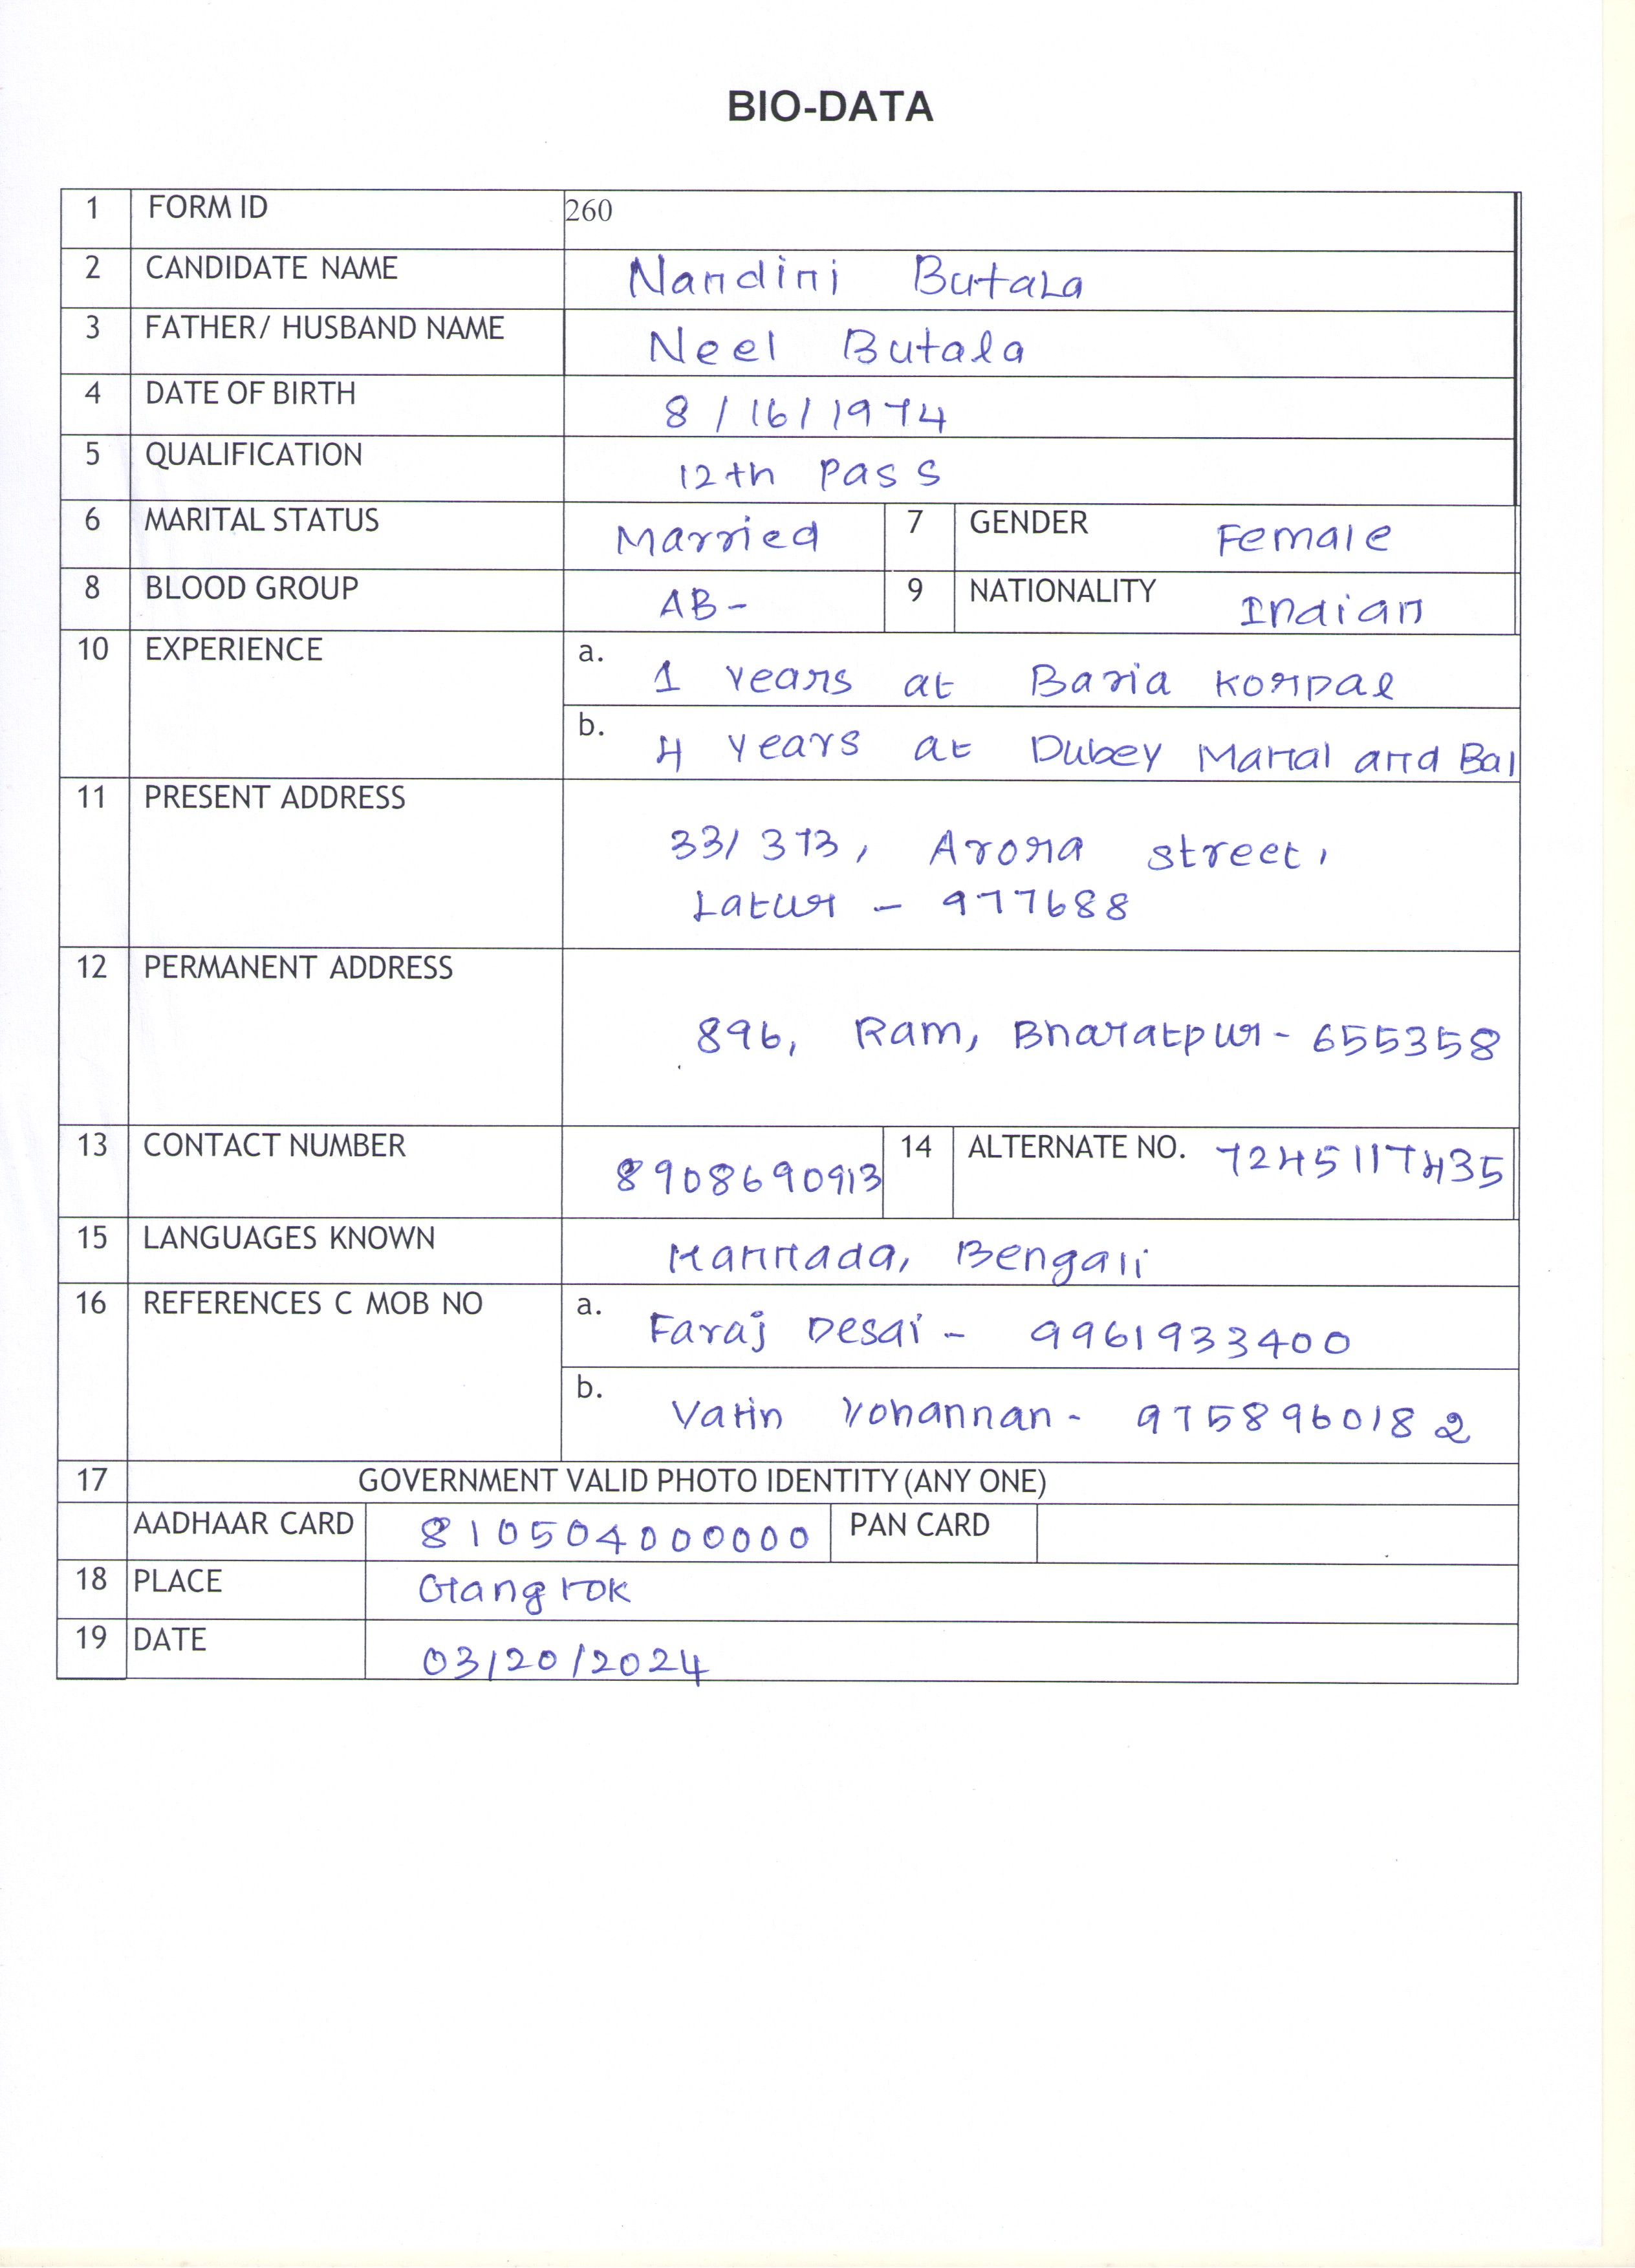 BIO-DATA
1 FORM ID 260
2 CANDIDATE NAME Nandini Butala
3 FATHER/ HUSBAND NAME Neel Butala
4 DATE OF BIRTH 8/16/1974
5 QUALIFICATION 12th Pass
6 MARITAL STATUS Married 7 GENDER Female
8 BLOOD GROUP AB- 9 NATIONALITY Indian
10 EXPERIENCE a. 1 years at Baria Korpal
b. 4 years at Dubey Mahal and Bal
11 PRESENT ADDRESS
33/373, Arora street,
Latur - 977688
12 PERMANENT ADDRESS
896, Ram, Bharatpur - 655358
13 CONTACT NUMBER 8908690913 14 ALTERNATE NO. 7245117435
15 LANGUAGES KNOWN Kannada, Bengali
16 REFERENCES C MOB NO a. Faraj Desai - 9961933400
b. Yohannan - 9758960182
17 GOVERNMENT VALID PHOTO IDENTITY (ANY ONE)
AADHAAR CARD 810504000000 PAN CARD
18 PLACE Gangtok
19 DATE 03/20/2024